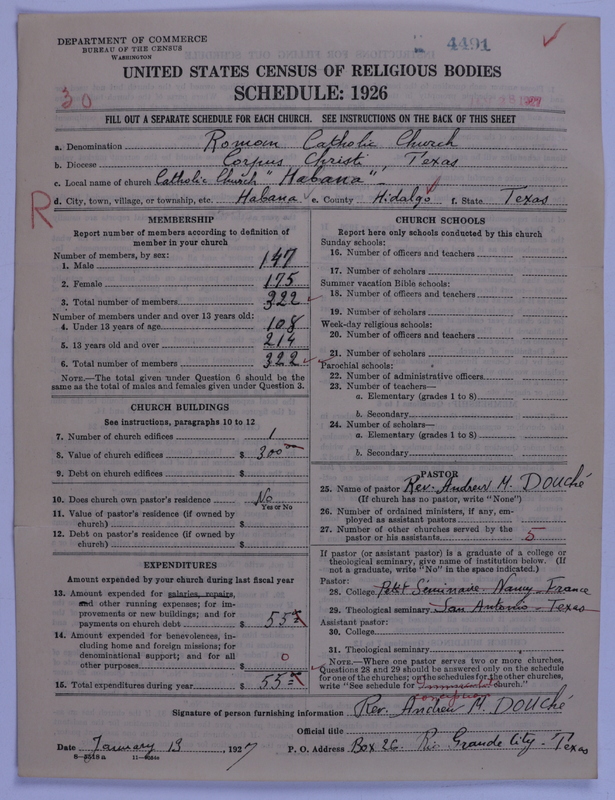 DEPARTMENT OF COMMERCE
BUREAU OF THE CENSUS
WASHINGTON
4491
UNITED STATES CENSUS OF RELIGIOUS BODIES
SCHEDULE: 1926
30
FILL OUT A SEPARATE SCHEDULE FOR EACH CHURCH. SEE INSTRUCTIONS ON THE BACK OF THIS SHEET
a. Denomination Roman Catholic Church
b. Diocese Corpus Christi, Texas
c. Local name of church Catholic Church "Habana",
R
d. City, town, village, or township, etc. Habana e. County Hidalgo f. State Texas
MEMBERSHIP
Report number of members according to definition of
member in your church
Number of members, by sex:
1. Male 147
2. Female 175
3. Total number of members 322
Number of members under and over 13 years old:
4. Under 13 years of age 108
5. 13 years old and over 214
6. Total number of members 322
NOTE.—The total given under Question 6 should be the
same as the total of males and females given under Question 3.
CHURCH BUILDINGS
See instructions, paragraphs 10 to 12
7. Number of church edifices 1
8. Value of church edifices $ 300
9. Debt on church edifices $
10. Does church own pastor's residence No
Yes or No
11. Value of pastor's residence (if owned by
church) $
12. Debt on pastor's residence (if owned by
church) $
EXPENDITURES
Amount expended by your church during last fiscal year
13. Amount expended for salaries, repairs,
and other running expenses; for im-
provements or new buildings; and for
payments on church debt $ 55
14. Amount expended for benevolences, in-
cluding home and foreign missions; for
denominational support; and for all
other purposes $ 0
15. Total expenditures during year $ 55
CHURCH SCHOOLS
Report here only schools conducted by this church
Sunday schools:
16. Number of officers and teachers
17. Number of scholars
Summer vacation Bible schools:
18. Number of officers and teachers
19. Number of scholars
Week-day religious schools:
20. Number of officers and teachers
21. Number of scholars
Parochial schools:
22. Number of administrative officers
23. Number of teachers—
a. Elementary (grades 1 to 8)
b. Secondary
24. Number of scholars—
a. Elementary (grades 1 to 8)
b. Secondary
PASTOR
25. Name of pastor Rev. Andrew M. DOUCHÉ
(If church has no pastor, write "None")
26. Number of ordained ministers, if any, em-
ployed as assistant pastors
27. Number of other churches served by the
pastor or his assistants 5
If pastor (or assistant pastor) is a graduate of a college or
theological seminary, give name of institution below. (If
not a graduate, write "No" in the space indicated.)
Pastor:
28. College Petit Seminaire - Nancy - France
29. Theological seminary San Antonio - Texas
Assistant pastor:
30. College
31. Theological seminary
NOTE.—Where one pastor serves two or more churches,
Questions 28 and 29 should be answered only on the schedule
for one of the churches; on the schedules for the other churches,
write "See schedule for Immaculate church."
Conception
Signature of person furnishing information Rev. Andrew M. DOUCHÉ
Official title
Date January 13, 1927 P. O. Address Box 26. Rio Grande City - Texas